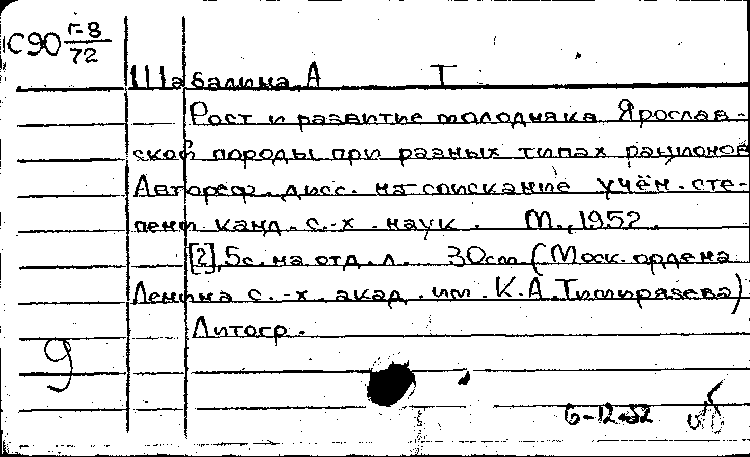 С90 Г-8
72
Шабалина, А Т
Рост и развитие молодняка Ярослав-
ской породы при разных типах рационов
Автореф. дисс. на соискание учён. сте-
пени канд. с.-х. наук. М., 1952.
[2], 5с. на отд. л. 30cm (Моск. ордена
Ленина с.-х. акад. им. К.А. Тимирязева)
Литогр.
9
6-12-52